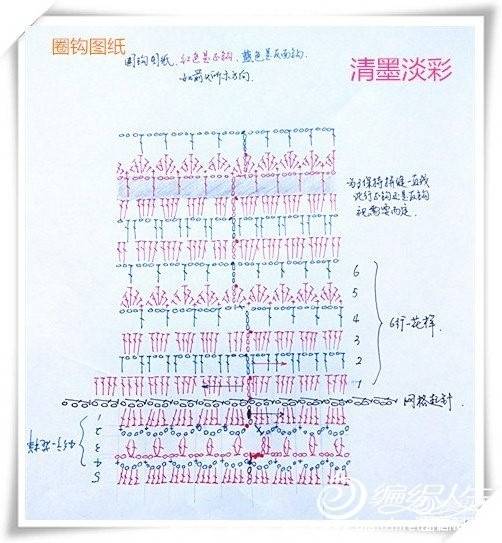 圈钩图纸
圈钩图纸，红色是正钩，蓝色是反面钩.
如箭头所示方向.
清墨淡彩
为了保持拼缝一直线
此行正钩还是反钩
视需要而定.
6
5
4
3
2
1
6行一花样.
网格起针.
1
2
3
4
5
编织人生